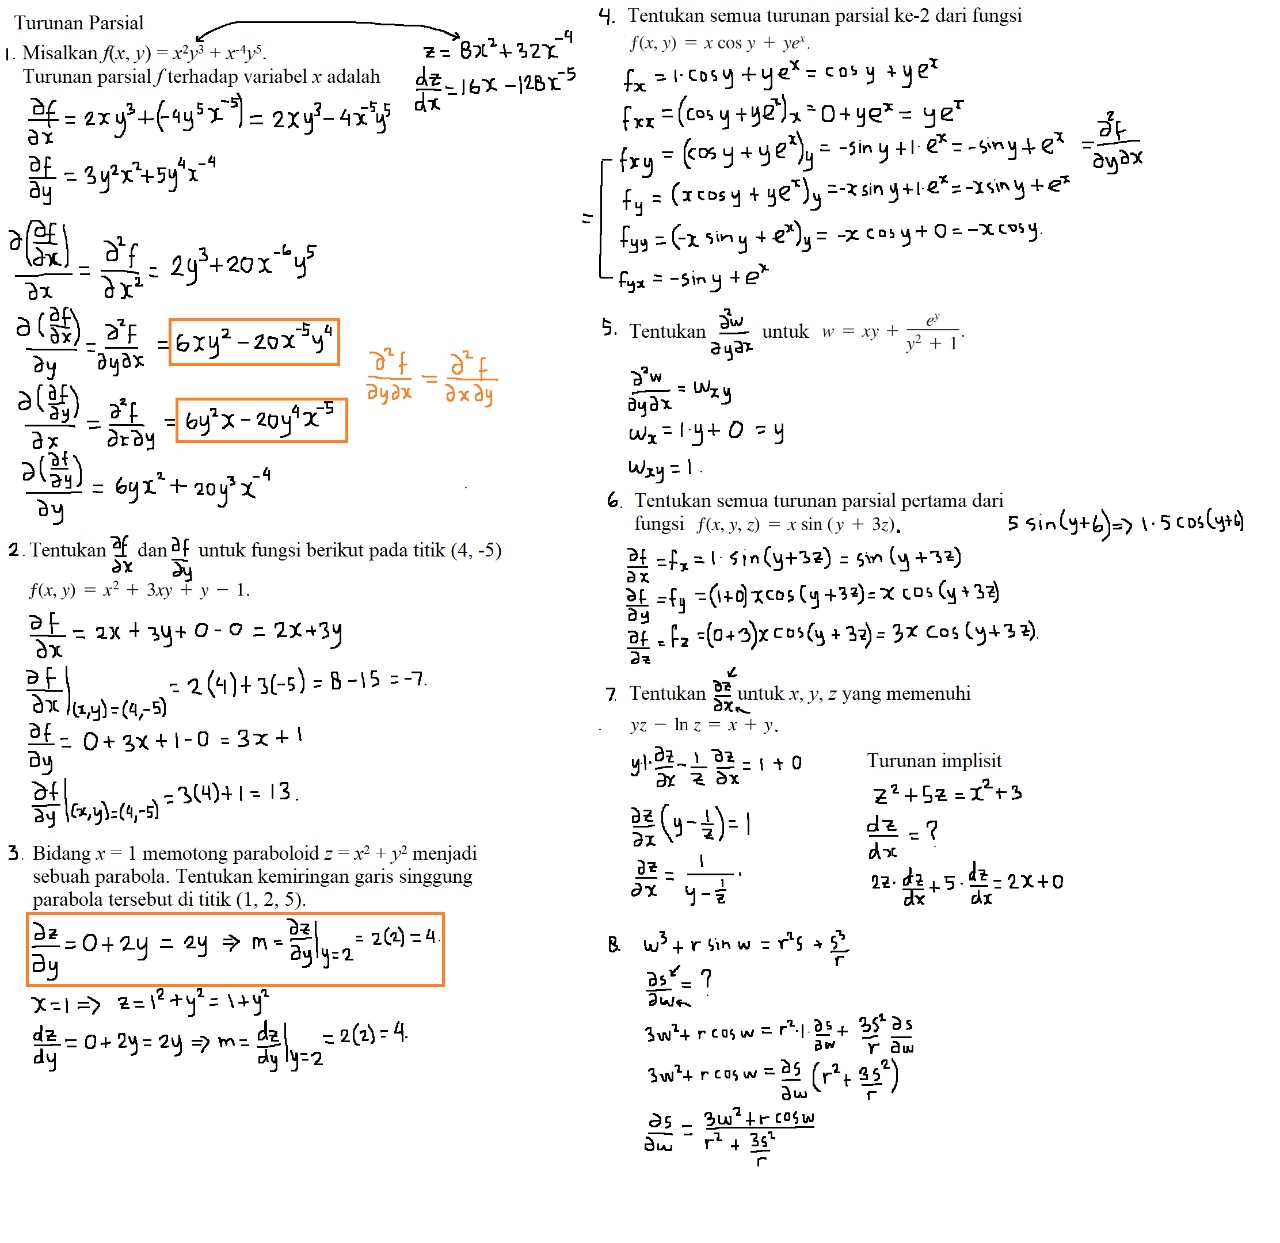 Turunan Parsial
1. Misalkan f(x, y) = x²y³ + x⁻⁴y⁵.
z = 8x² + 32x⁻⁴
Turunan parsial f terhadap variabel x adalah
dz/dx = 16x − 128x⁻⁵
∂f/∂x = 2xy³ + (−4y⁵x⁻⁵) = 2xy³ − 4x⁻⁵y⁵
∂f/∂y = 3y²x² + 5y⁴x⁻⁴
∂(∂f/∂x)/∂x = ∂²f/∂x² = 2y³ + 20x⁻⁶y⁵
∂(∂f/∂x)/∂y = ∂²f/∂y∂x = 6xy² − 20x⁻⁵y⁴
∂²f/∂y∂x = ∂²f/∂x∂y
∂(∂f/∂y)/∂x = ∂²f/∂x∂y = 6y²x − 20y⁴x⁻⁵
∂(∂f/∂y)/∂y = 6yx² + 20y³x⁻⁴
2. Tentukan ∂f/∂x dan ∂f/∂y untuk fungsi berikut pada titik (4, -5)
f(x, y) = x² + 3xy + y − 1.
∂f/∂x = 2x + 3y + 0 − 0 = 2x + 3y
∂f/∂x|(x,y)=(4,−5) = 2(4) + 3(−5) = 8 − 15 = −7.
∂f/∂y = 0 + 3x + 1 − 0 = 3x + 1
∂f/∂y|(x,y)=(4,−5) = 3(4) + 1 = 13.
3. Bidang x = 1 memotong paraboloid z = x² + y² menjadi
sebuah parabola. Tentukan kemiringan garis singgung
parabola tersebut di titik (1, 2, 5).
∂z/∂y = 0 + 2y = 2y ⇒ m = ∂z/∂y|y=2 = 2(2) = 4.
x = 1 ⇒ z = 1² + y² = 1 + y²
dz/dy = 0 + 2y = 2y ⇒ m = dz/dy|y=2 = 2(2) = 4.
4. Tentukan semua turunan parsial ke-2 dari fungsi
f(x, y) = x cos y + yeˣ.
fx = 1·cos y + yeˣ = cos y + yeˣ
fxx = (cos y + yeˣ)x = 0 + yeˣ = yeˣ
fxy = (cos y + yeˣ)y = −sin y + 1·eˣ = −sin y + eˣ = ∂²f/∂y∂x
fy = (x cos y + yeˣ)y = −x sin y + 1·eˣ = −x sin y + eˣ
=
fyy = (−x sin y + eˣ)y = −x cos y + 0 = −x cos y.
fyx = −sin y + eˣ
5. Tentukan ∂²w/∂y∂x untuk w = xy + eʸ/(y² + 1).
∂²w/∂y∂x = wxy
wx = 1·y + 0 = y
wxy = 1.
6. Tentukan semua turunan parsial pertama dari
fungsi f(x, y, z) = x sin (y + 3z).
5 sin(y+6) ⇒ 1·5 cos(y+6)
∂f/∂x = fx = 1· sin(y+3z) = sin (y+3z)
∂f/∂y = fy = (1+0) x cos(y+3z) = x cos (y+3z)
∂f/∂z = fz = (0+3) x cos(y+3z) = 3x cos (y+3z).
7. Tentukan ∂z/∂x untuk x, y, z yang memenuhi
yz − ln z = x + y.
y·1·∂z/∂x − 1/z ∂z/∂x = 1 + 0
∂z/∂x (y − 1/z) = 1
∂z/∂x = 1/(y − 1/z).
Turunan implisit
z² + 5z = x² + 3
dz/dx = ?
2z·dz/dx + 5·dz/dx = 2x + 0
8. w³ + r sin w = r²s + s³/r
∂s/∂w = ?
3w² + r cos w = r²·1·∂s/∂w + 3s²/r ∂s/∂w
3w² + r cos w = ∂s/∂w (r² + 3s²/r)
∂s/∂w = (3w² + r cos w)/(r² + 3s²/r)